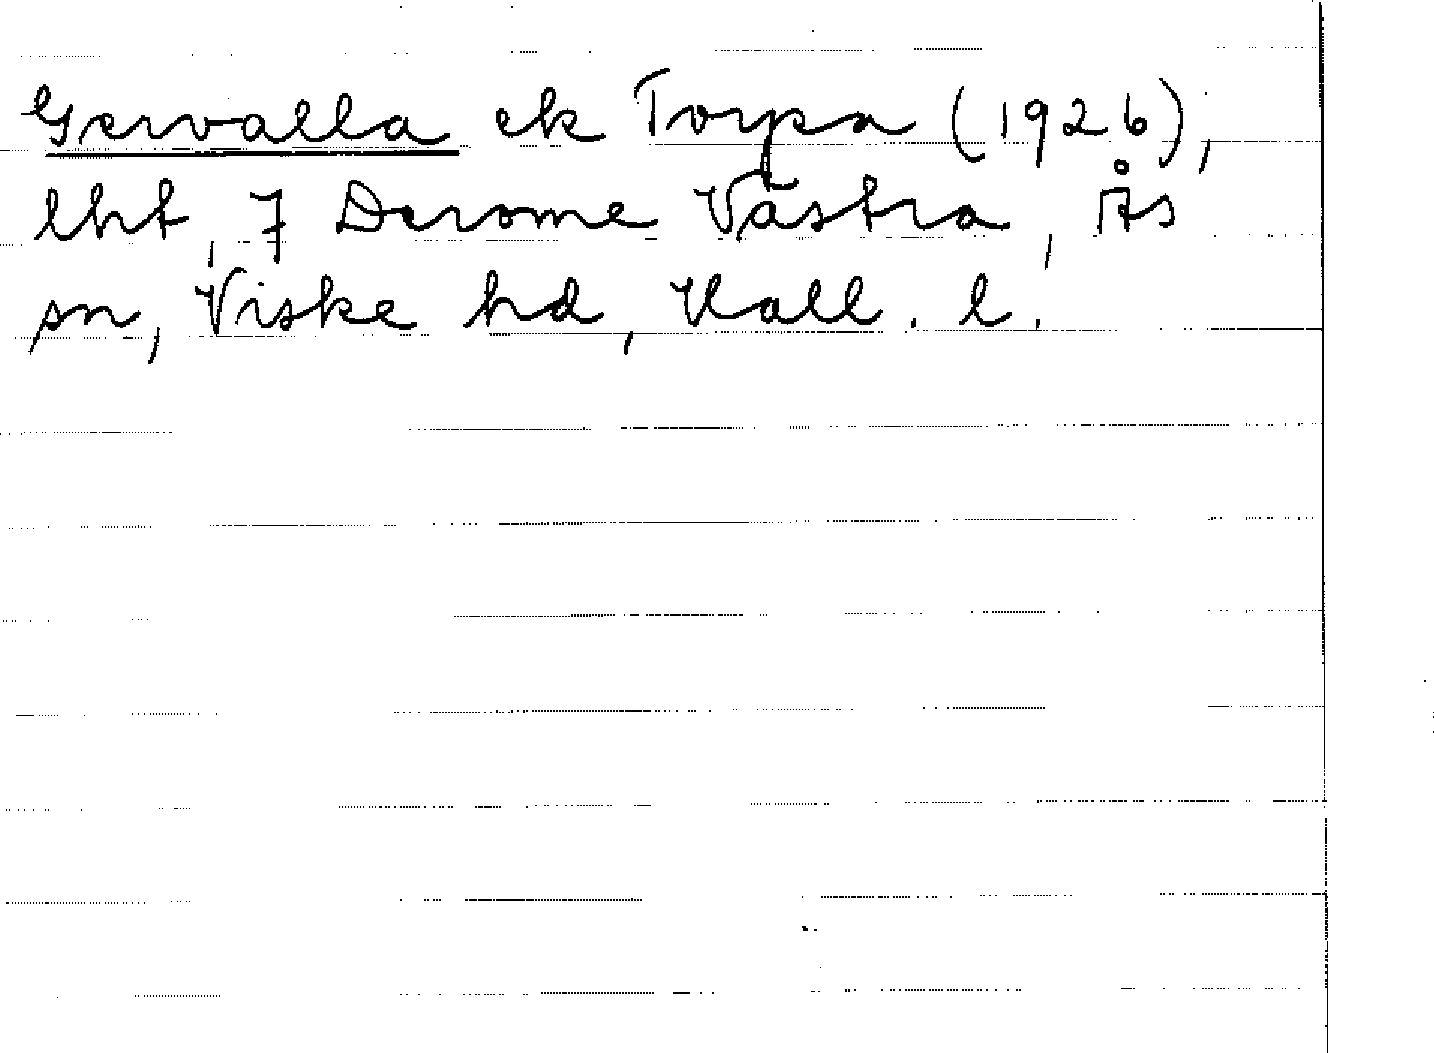 Gervalla ek Torpa (1926),
lht, 7 Derome Västra, Ås
sn, Viske hd, Hall. l.